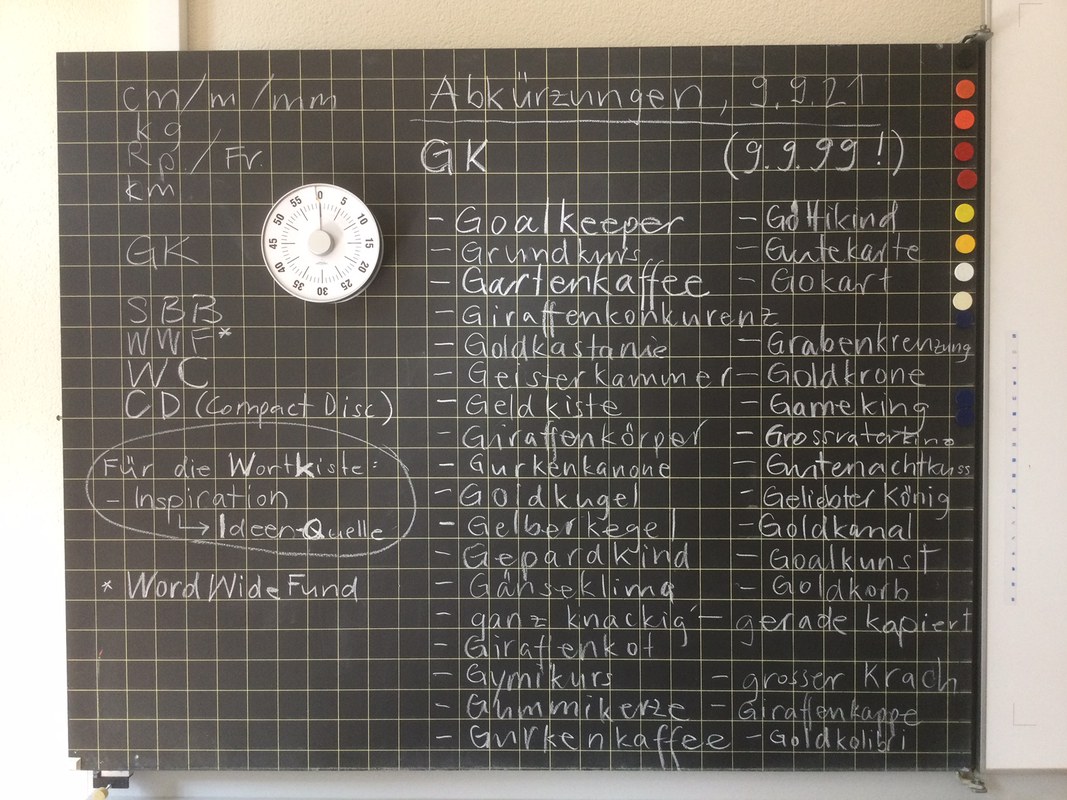 cm/m/mm
kg
Rp./Fr.
km
GK
SBB
WWF*
WC
CD (Compact Disc)
Für die Wortkiste:
- Inspiration
↳ Ideen-Quelle
* Word Wide Fund
55 0 5 10 15 20 25 30 35 40 45 50
Abkürzungen, 9.9.21
GK (9.9.99!)
- Goalkeeper - Göttikind
- Grundkurs - Gutekarte
- Gartenkaffee - Gokart
- Giraffenkonkurenz
- Goldkastanie - Grabenkreuzung
- Geisterkammer - Goldkrone
- Geldkiste - Gameking
- Giraffenkörper - Grossvaterkino
- Gurkenkanone - Gutenachtkuss
- Goldkugel - Geliebter König
- Gelber Kegel - Goldkanal
- Gepardkind - Goalkunst
- Gänseklima - Goldkorb
- ganz knackig - gerade kapiert
- Giraffenkot
- Gymikurs - grosser Krach
- Gummikerze - Giraffenkappe
- Gurkenkaffee - Goldkolibri